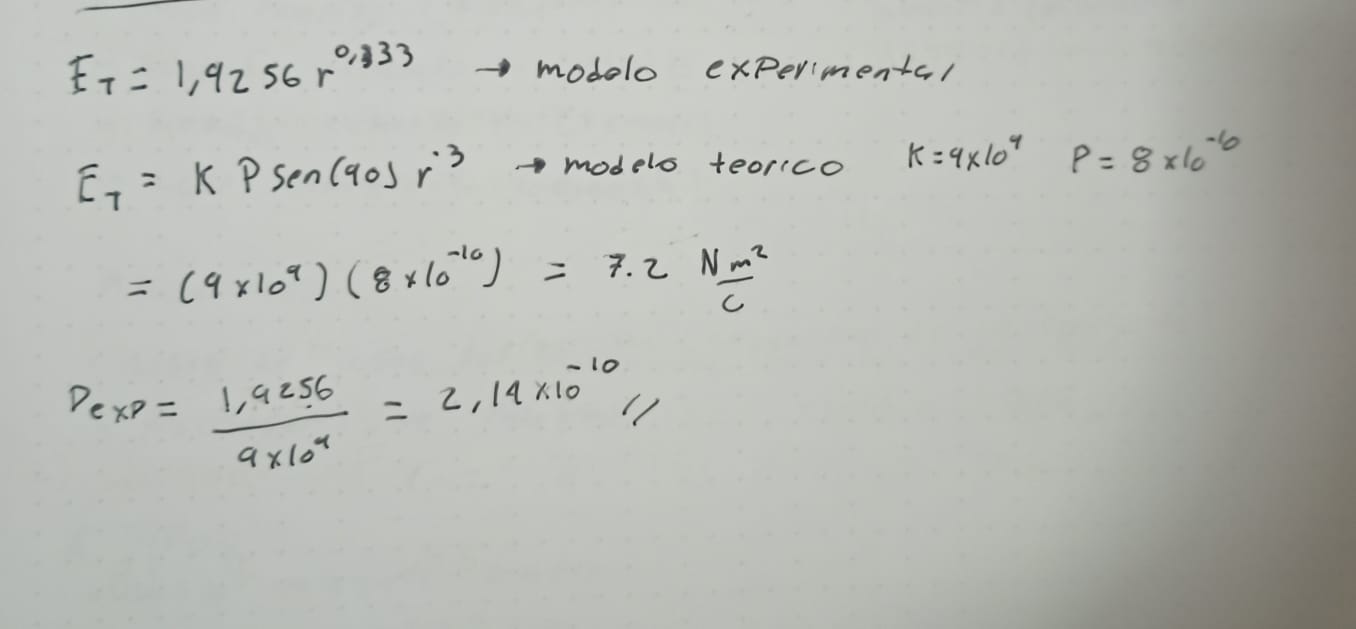 E_T = 1,9256 r^0,333 → modelo experimental
E_T = K P sen(90) r^-3 → modelo teorico K = 9x10^9 P = 8x10^-10
= (9x10^9)(8x10^-10) = 7.2 Nm²/C
P_exp = 1,9256 / 9x10^9 = 2,14x10^-10 //